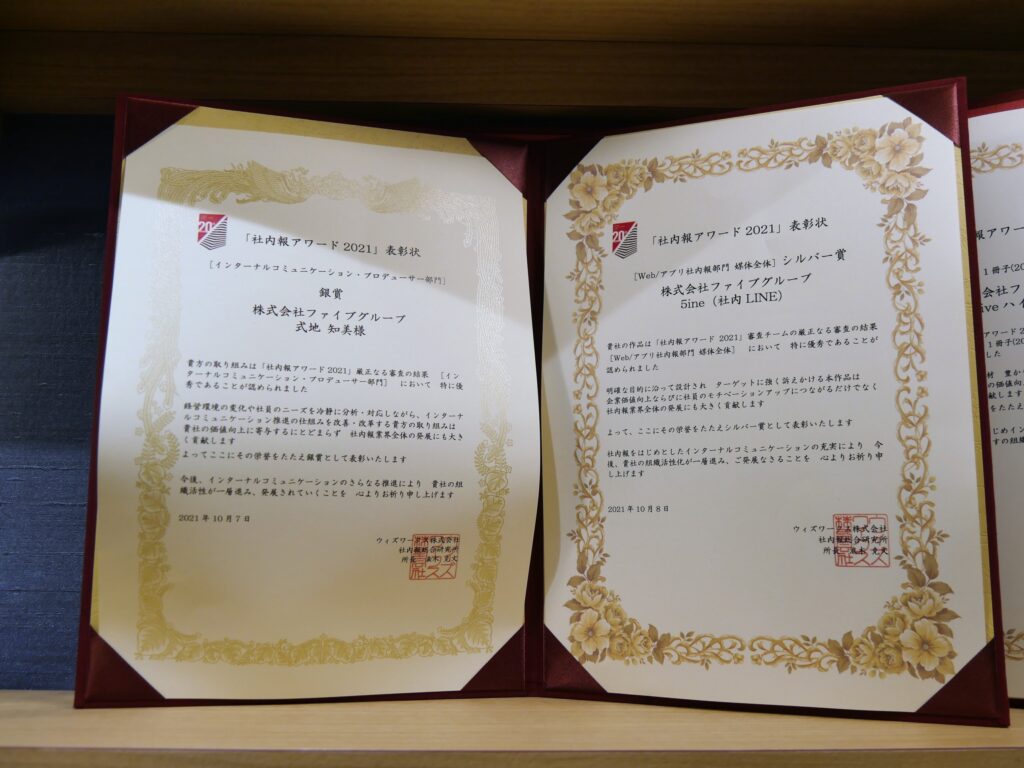 「社内報アワード 2021」表彰状
［インターナルコミュニケーション・プロデューサー部門］
銀賞
株式会社ファイブグループ
式地 知美様
貴方の取り組みは「社内報アワード 2021」厳正なる審査の結果 ［イン
ターナルコミュニケーション・プロデューサー部門］ において 特に優
秀であることが認められました
経営環境の変化や社員のニーズを冷静に分析・対応しながら、インターナ
ルコミュニケーション推進の仕組みを改善・改革する貴方の取り組みは
貴社の価値向上に寄与するにとどまらず 社内報業界全体の発展にも大き
く貢献します
よってここにその栄誉をたたえ銀賞として表彰いたします
今後、インターナルコミュニケーションのさらなる推進により 貴社の組
織活性が一層進み、発展されていくことを 心よりお祈り申し上げます
2021年10月7日
ウィズワークス株式会社
社内報総合研究所
所長
「社内報アワード 2021」表彰状
［Web/アプリ社内報部門 媒体全体］シルバー賞
株式会社ファイブグループ
5ine（社内 LINE）
貴社の作品は「社内報アワード 2021」審査チームの厳正なる審査の結果
［Web/アプリ社内報部門 媒体全体］ において 特に優秀であることが
認められました
明確な目的に沿って設計され ターゲットに強く訴えかける本作品は
企業価値向上ならびに社員のモチベーションアップにつながるだけでなく
社内報業界全体の発展にも大きく貢献します
よって、ここにその栄誉をたたえシルバー賞として表彰いたします
社内報をはじめとしたインターナルコミュニケーションの充実により 今
後、貴社の組織活性化が一層進み、ご発展なさることを 心よりお祈り申
し上げます
2021年10月8日
ウィズワークス株式会社
社内報総合研究所
所長